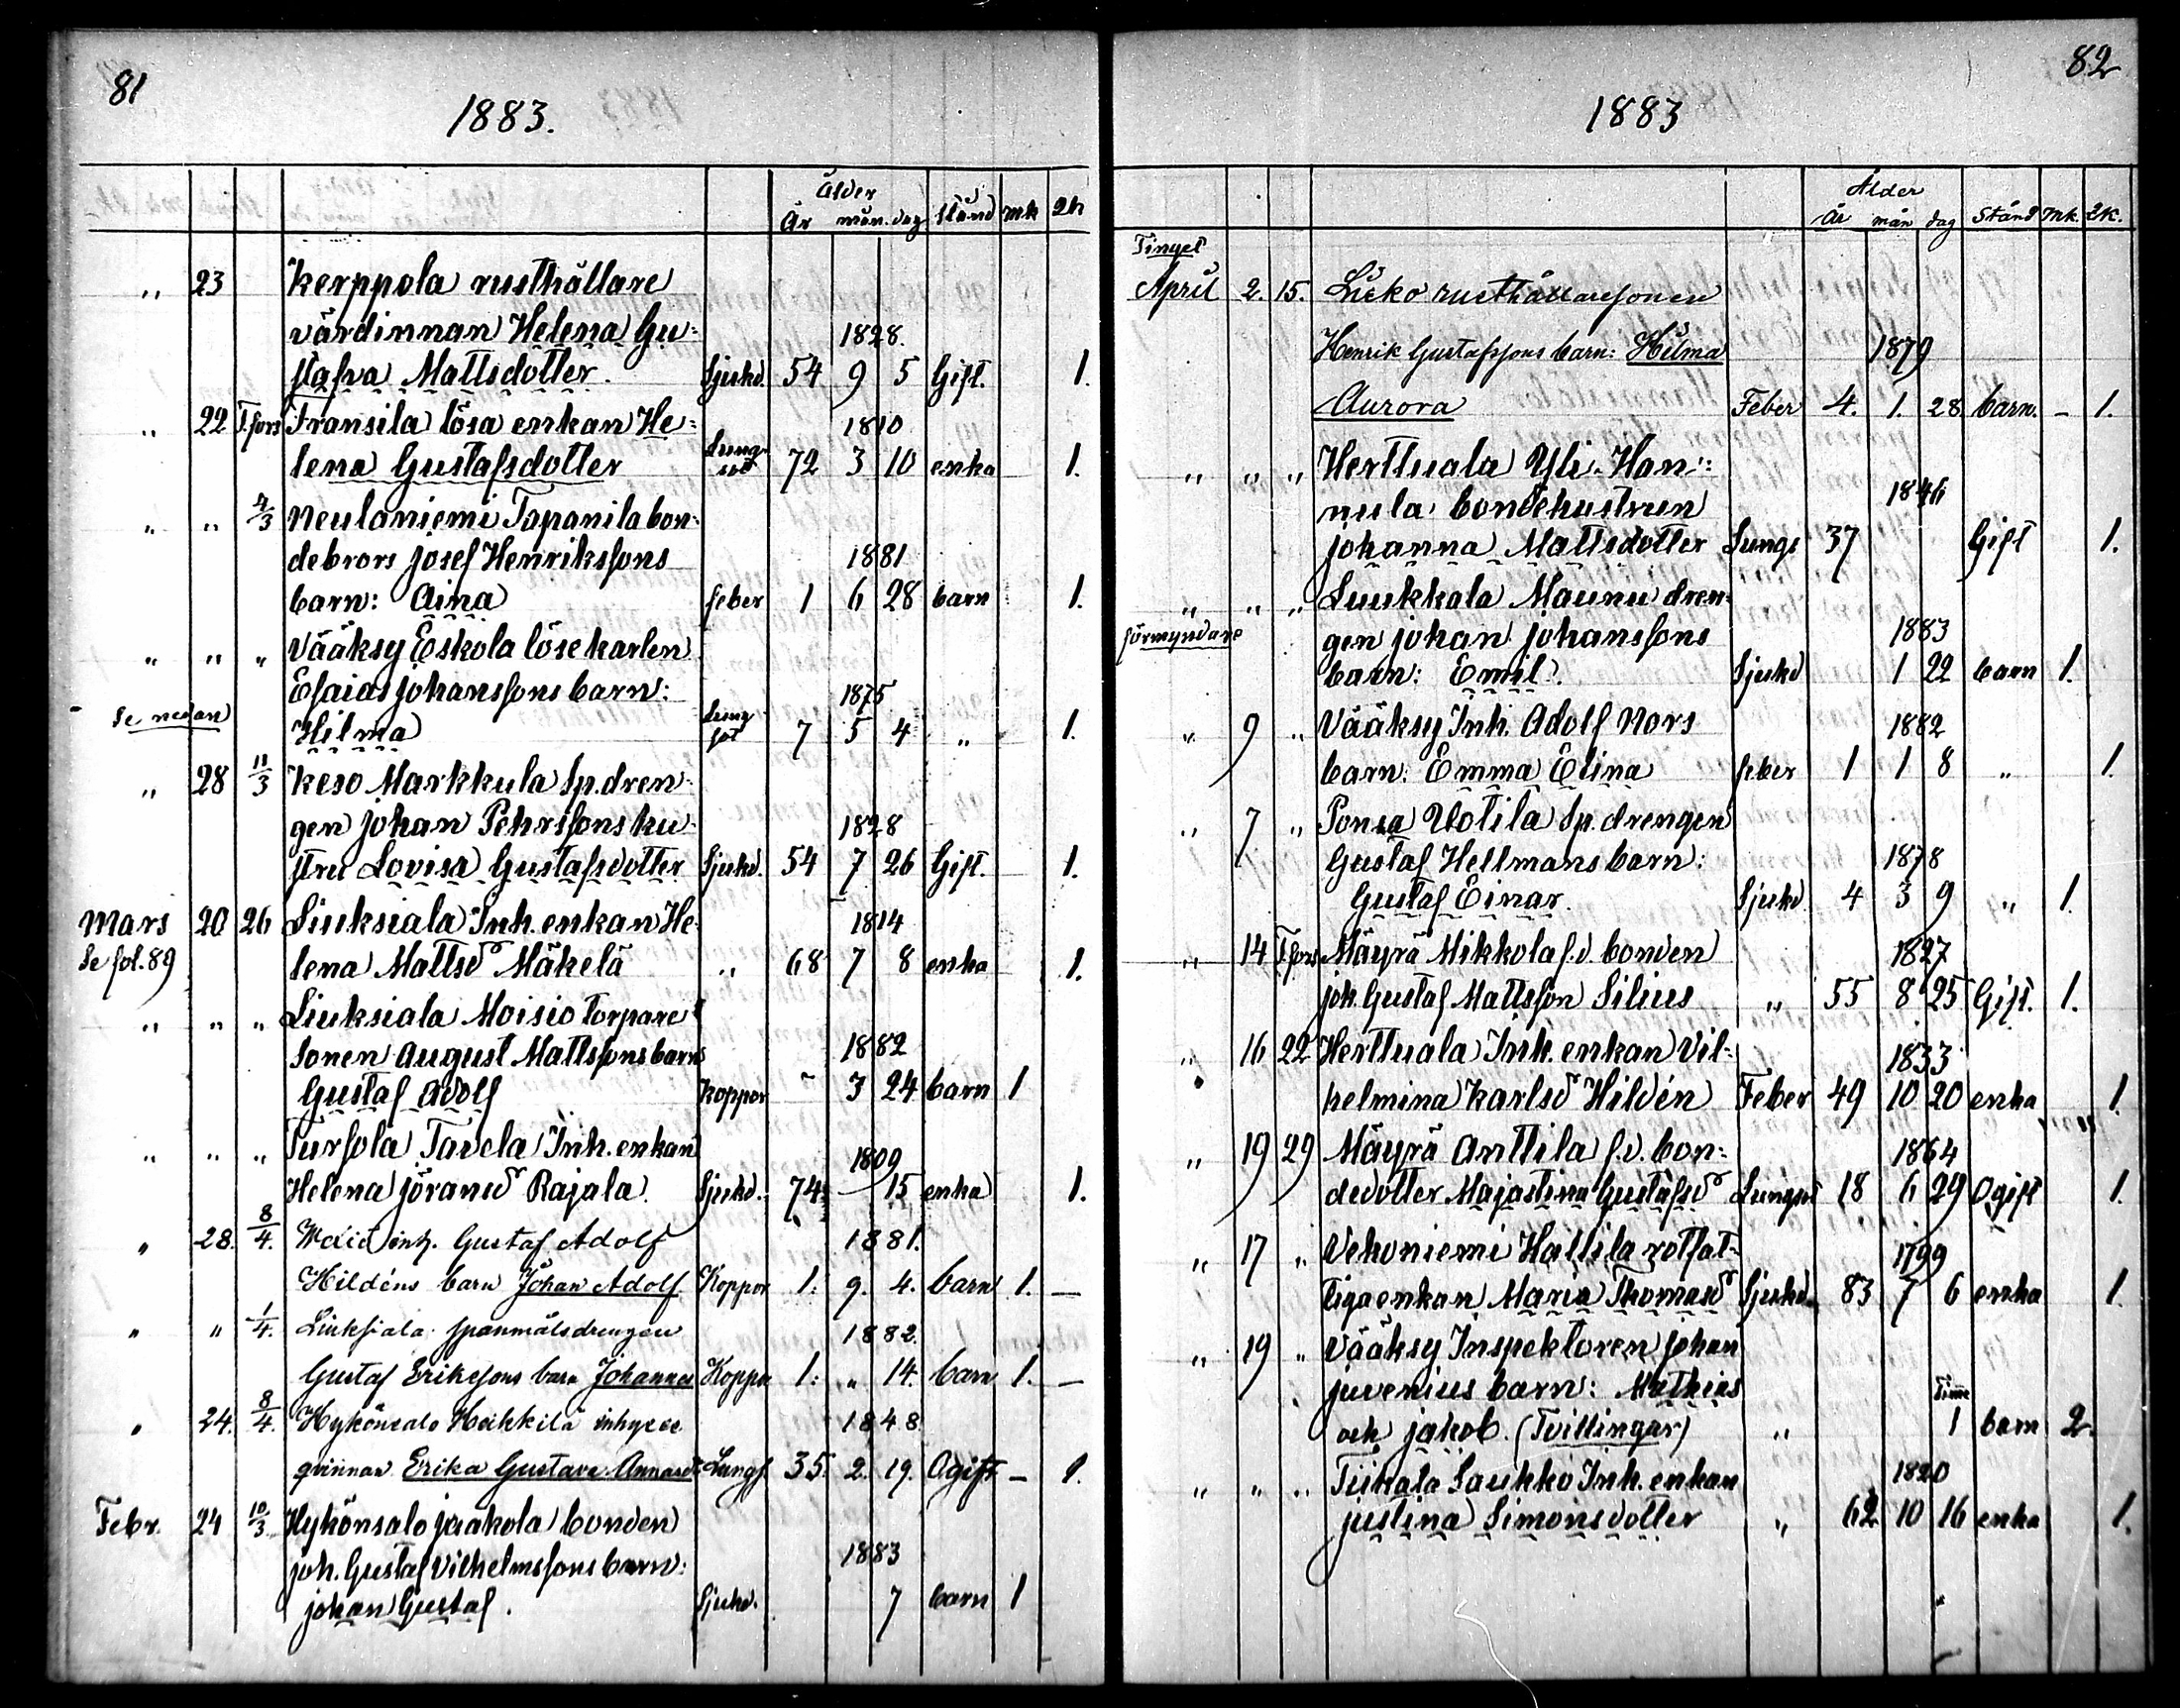 81
1883.
Ålder
År mån. dag stånd mk qk
„ 23 Kerppola rusthållare
värdinnan Helena Gu= 1828.
stafva Mattsdotter. Sjukd. 54 9 5 Gift. 1.
„ 22 T.fors Fransila lösa enkan He= 1810
lena Gustafsdotter Lung- sot 72 3 10 enka 1.
„ „ 4/3 Neulaniemi Tapanila bon-
debrors Josef Henrikssons 1881
barn: Aina feber 1 6 28 barn 1.
„ „ „ Vääksy Eskola lösekarlen
Esaias Johanssons barn: 1875
Se nedan Hilma Lung sot 7 5 4 „ 1.
„ 28 11/3 Keso Markkula Sp.dren-
gen Johan Pehrssons hu- 1828
stru Lovisa Gustafsdotter Sjukd. 54 7 26 Gift. 1.
Mars 20 26 Liuksiala Inh. enkan He- 1814
Se fol. 89 lena Mattsd Mäkelä „ 68 7 8 enka 1.
„ „ „ Liuksiala Moisio torpare
sonen August Mattssons barn 1882
Gustaf Adolf Koppor - 3 24 barn 1
„ „ „ Tursola Tavela Inh. enkan 1809
Helena Jöransd Rajala. Sjukd. 74 — 15 enka 1.
„ 28. 8/4. inh. Gustaf Adolf 1881.
Hildéns barn Johan Adolf Koppor 1. 9. 4. barn 1. —
„ „ 1/4. Liuksiala spanmålsdrengen 1882.
Gustaf Erikssons barn Johannes Koppor 1. „ 14. barn 1. —
„ 24. 8/4. Hykönsalo Heikkilä inhyses 1848
qvinnan Erika Gustava Annasd. Lungs. 35. 2. 19. Ogift. — 1.
Febr. 24 10/3 Hykönsalo Jaakola bonden
Joh. Gustaf Vilhelmssons barn: 1883
Johan Gustaf. Sjukd. 7 barn 1
82
1883
Ålder
År mån dag Stånd mk. qk.
Tinget
April 2. 15. Liuko rusthållaresonen
Henrik Gustafssons barn: Hilma 1879
Aurora Feber 4. 1. 28 barn. — 1.
„ „ „ Herttuala Yli-Han=
nula bondehustrun 1846
Johanna Mattsdotter Lungs 37 Gift 1.
„ „ „ Luukkala Maunu dren-
förmyndare gen Johan Johanssons 1883
barn: Emil. Sjukd 1 22 barn 1.
„ 9 „ Vääksy Inh. Adolf Nors 1882
barn: Emma Elina feber 1 1 8 „ 1.
„ 7 „ Ponsa Uotila Sp.drengen
Gustaf Hellmans barn: 1878
Gustaf Einar. Sjukd 4 3 9 „ 1.
„ 14 T.fors Mäyrä Mikkola f.d. bonden 1827
Joh. Gustaf Mattsson Silius „ 55 8 25 Gift. 1.
„ 16 22 Herttuala Inh. enkan Vil= 1833
helmina Karlsd Hildén Feber 49 10 20 enka 1.
„ 19 29 Mäyrä Anttila f.d. bon= 1864
dedotter Majastina Gustafsd Lungsot 18 6 29 Ogift 1.
„ 17 „ Vehoniemi Hallila rotfat- 1799
tiga enkan Maria Thomasd Sjukd. 83 7 6 enka 1.
„ 19 „ Vääksy Inspektoren Johan
Juvenius barn: Mathias Timme
och Jakob. (Tvillingar) „ 1 barn 2.
„ „ „ Tiihala Saukko Inh. enkan 1820
Justina Simonsdotter „ 62 10 16 enka 1.